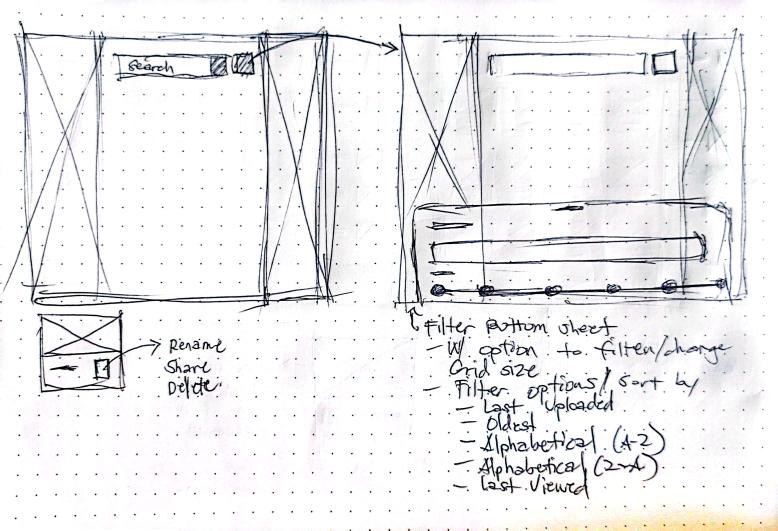 Search
Rename
Share
Delete
Filter Bottom sheet
- W/ option to filter/change
Grid size
- Filter options/sort by
- Last Uploaded
- Oldest
- Alphabetical (A-Z)
- Alphabetical (Z-A)
- Last Viewed